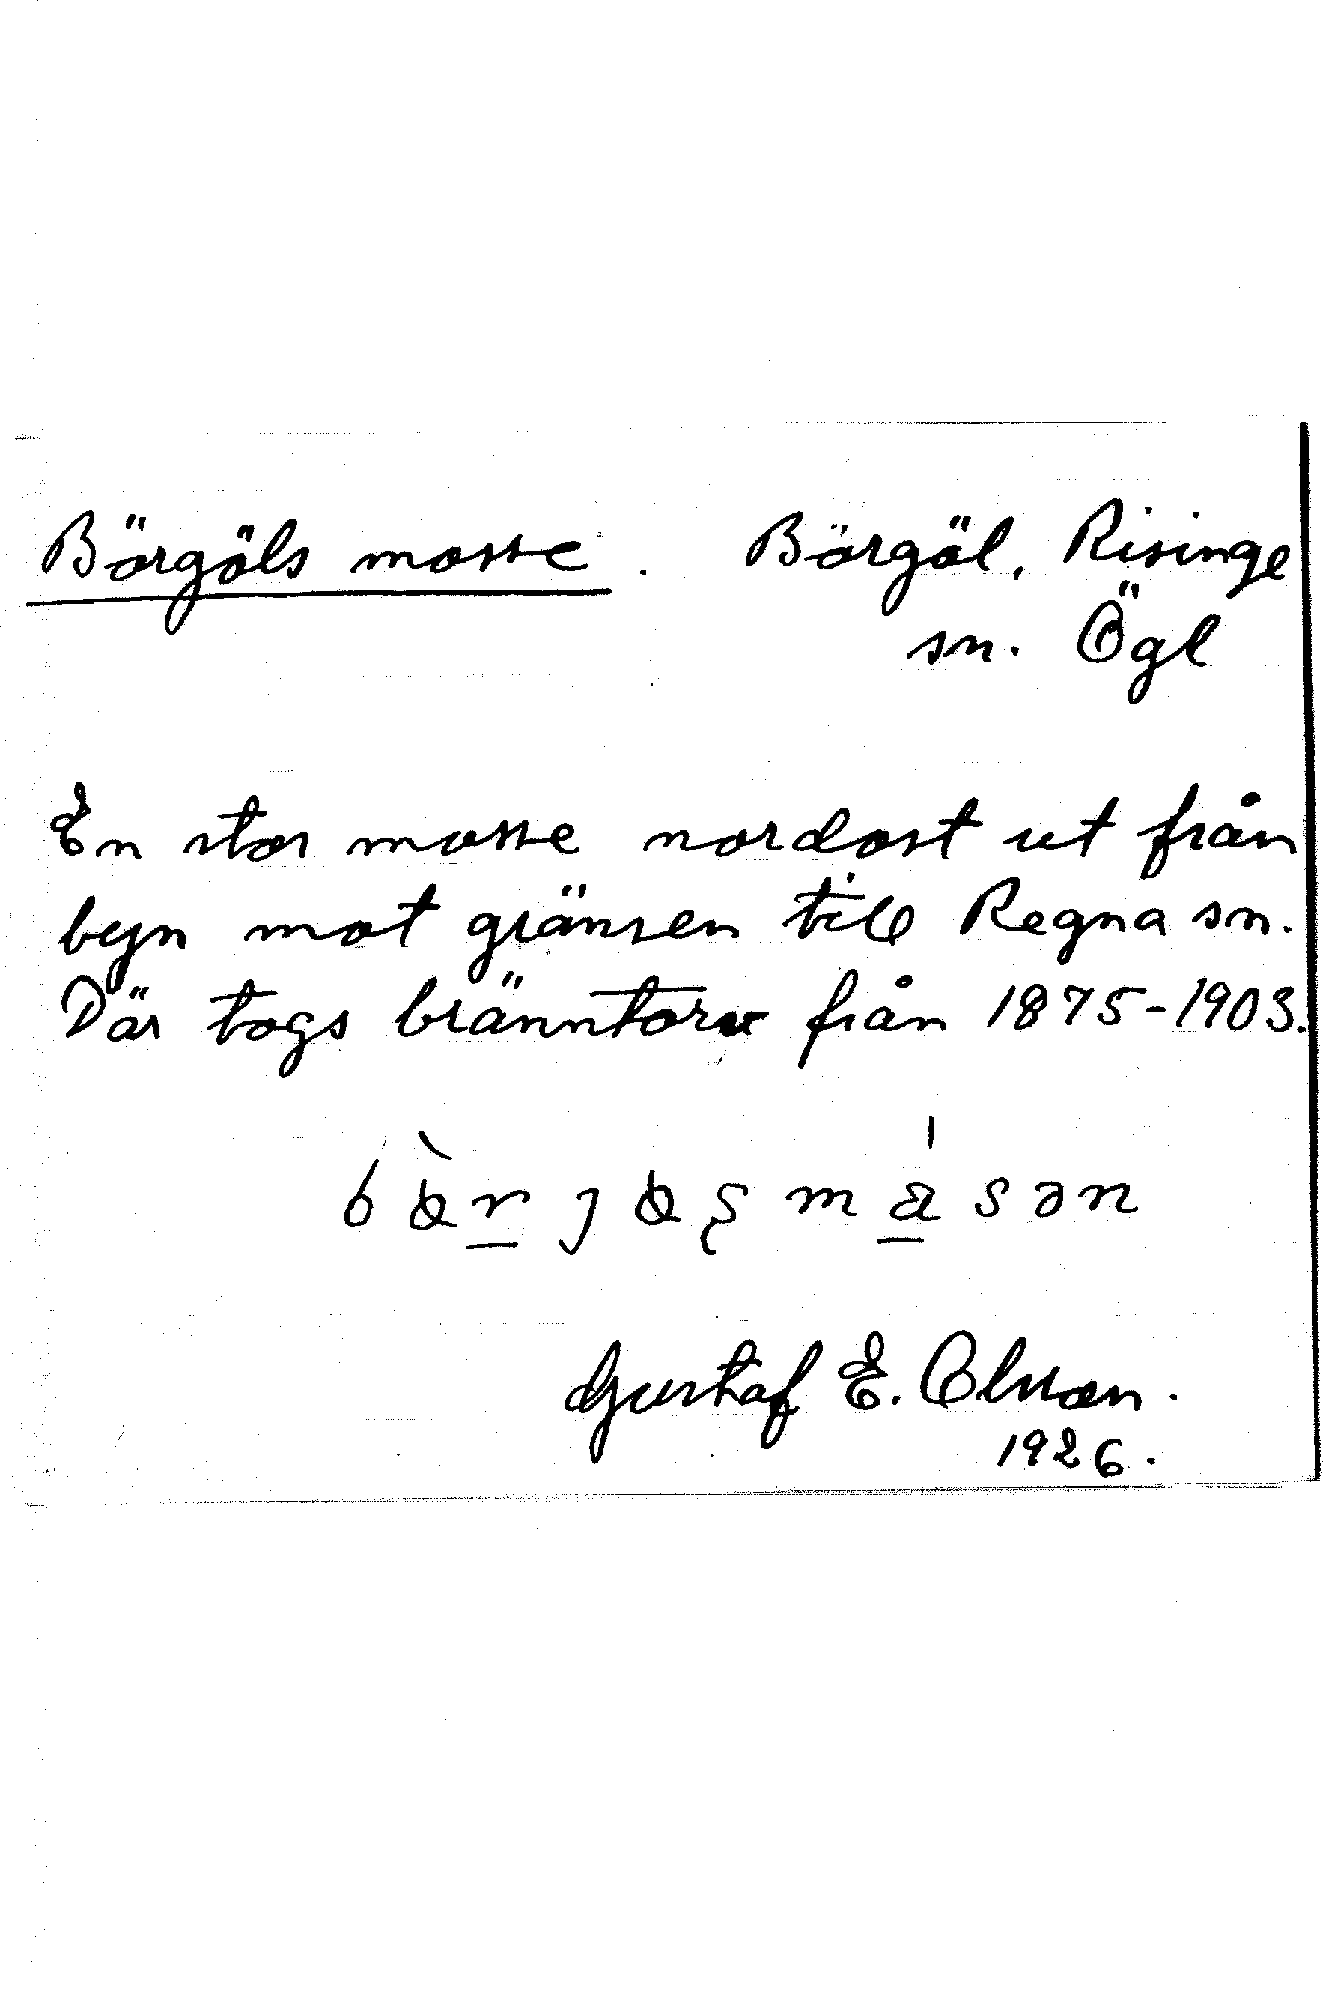 Börgöls mosse. Börgöl, Risinge
sn. Ögl
En stor mosse nordost ut från
byn mot gränsen till Regna sn.
Där togs bränntorv från 1875-1903.
Gustaf E. Olsson.
1926.